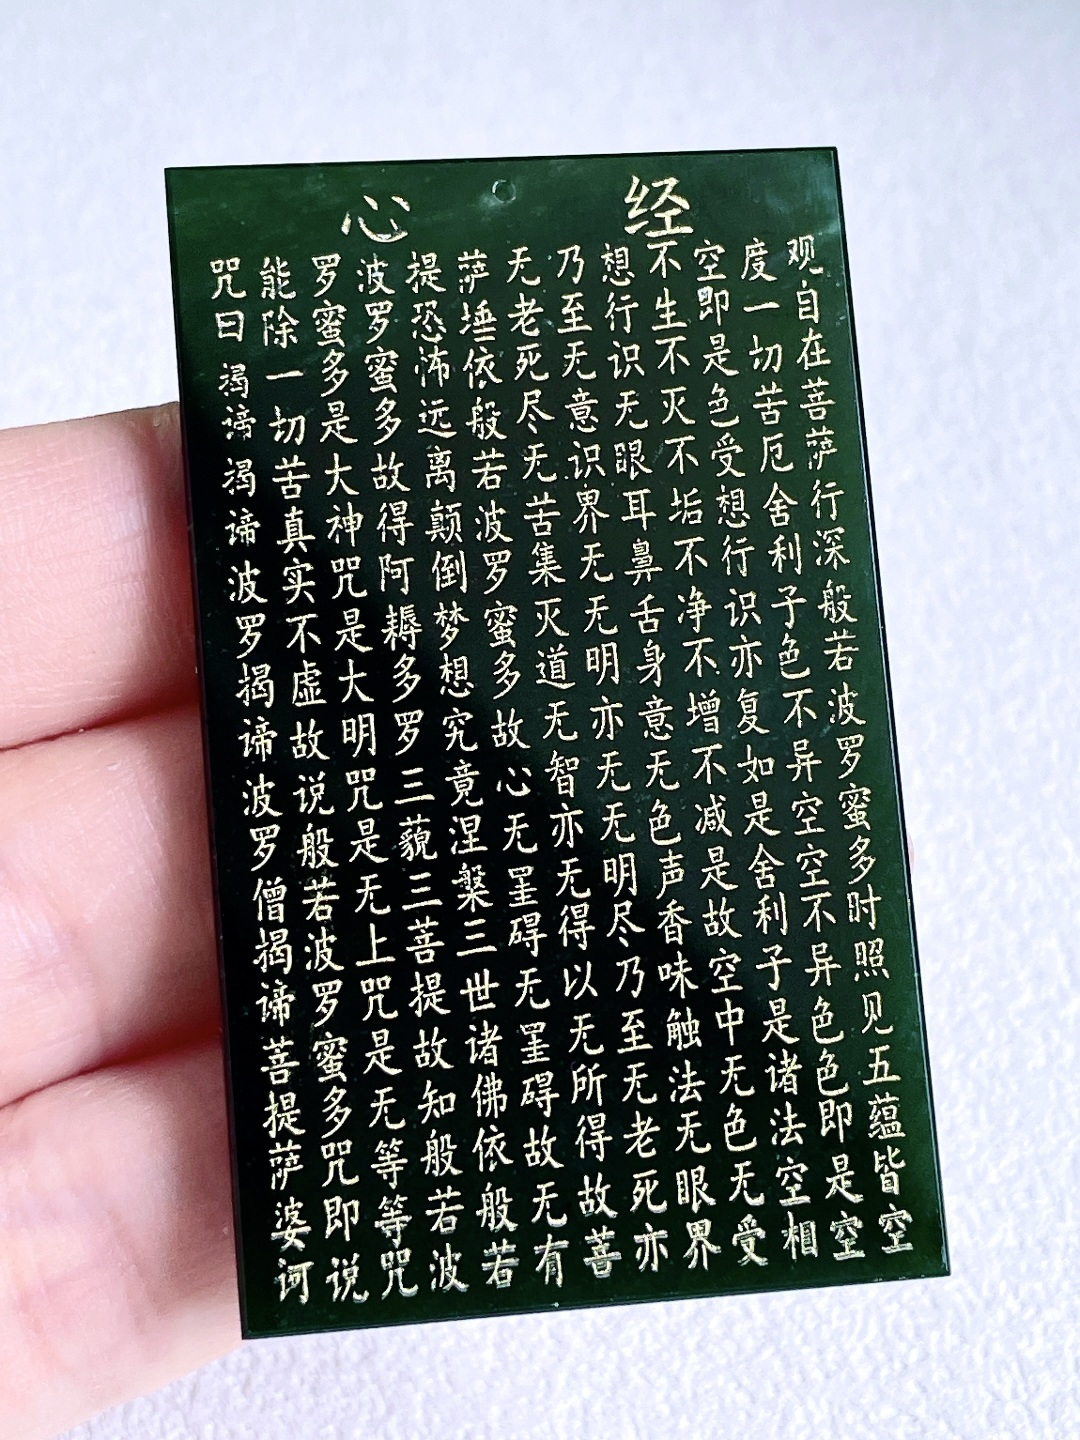 心经
观自在菩萨行深般若波罗蜜多时照见五蕴皆空
度一切苦厄舍利子色不异空空不异色色即是空
空即是色受想行识亦复如是舍利子是诸法空相
不生不灭不垢不净不增不减是故空中无色无受
想行识无眼耳鼻舌身意无色声香味触法无眼界
乃至无意识界无无明亦无无明尽乃至无老死亦
无老死尽无苦集灭道无智亦无得以无所得故菩
萨埵依般若波罗蜜多故心无罣碍无罣碍故无有
提恐怖远离颠倒梦想究竟涅槃三世诸佛依般若
波罗蜜多故得阿耨多罗三藐三菩提故知般若波
罗蜜多是大神咒是大明咒是无上咒是无等等咒
能除一切苦真实不虚故说般若波罗蜜多咒即说
咒曰揭谛揭谛波罗揭谛波罗僧揭谛菩提萨婆诃